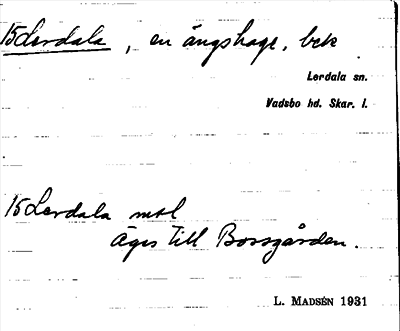 15 Lerdala, en ängshage, bek
Lerdala sn.
Vadsbo hd. Skar. l.
15 Lerdala mtl
Äges till Bossgården.
L. MADSÉN 1931